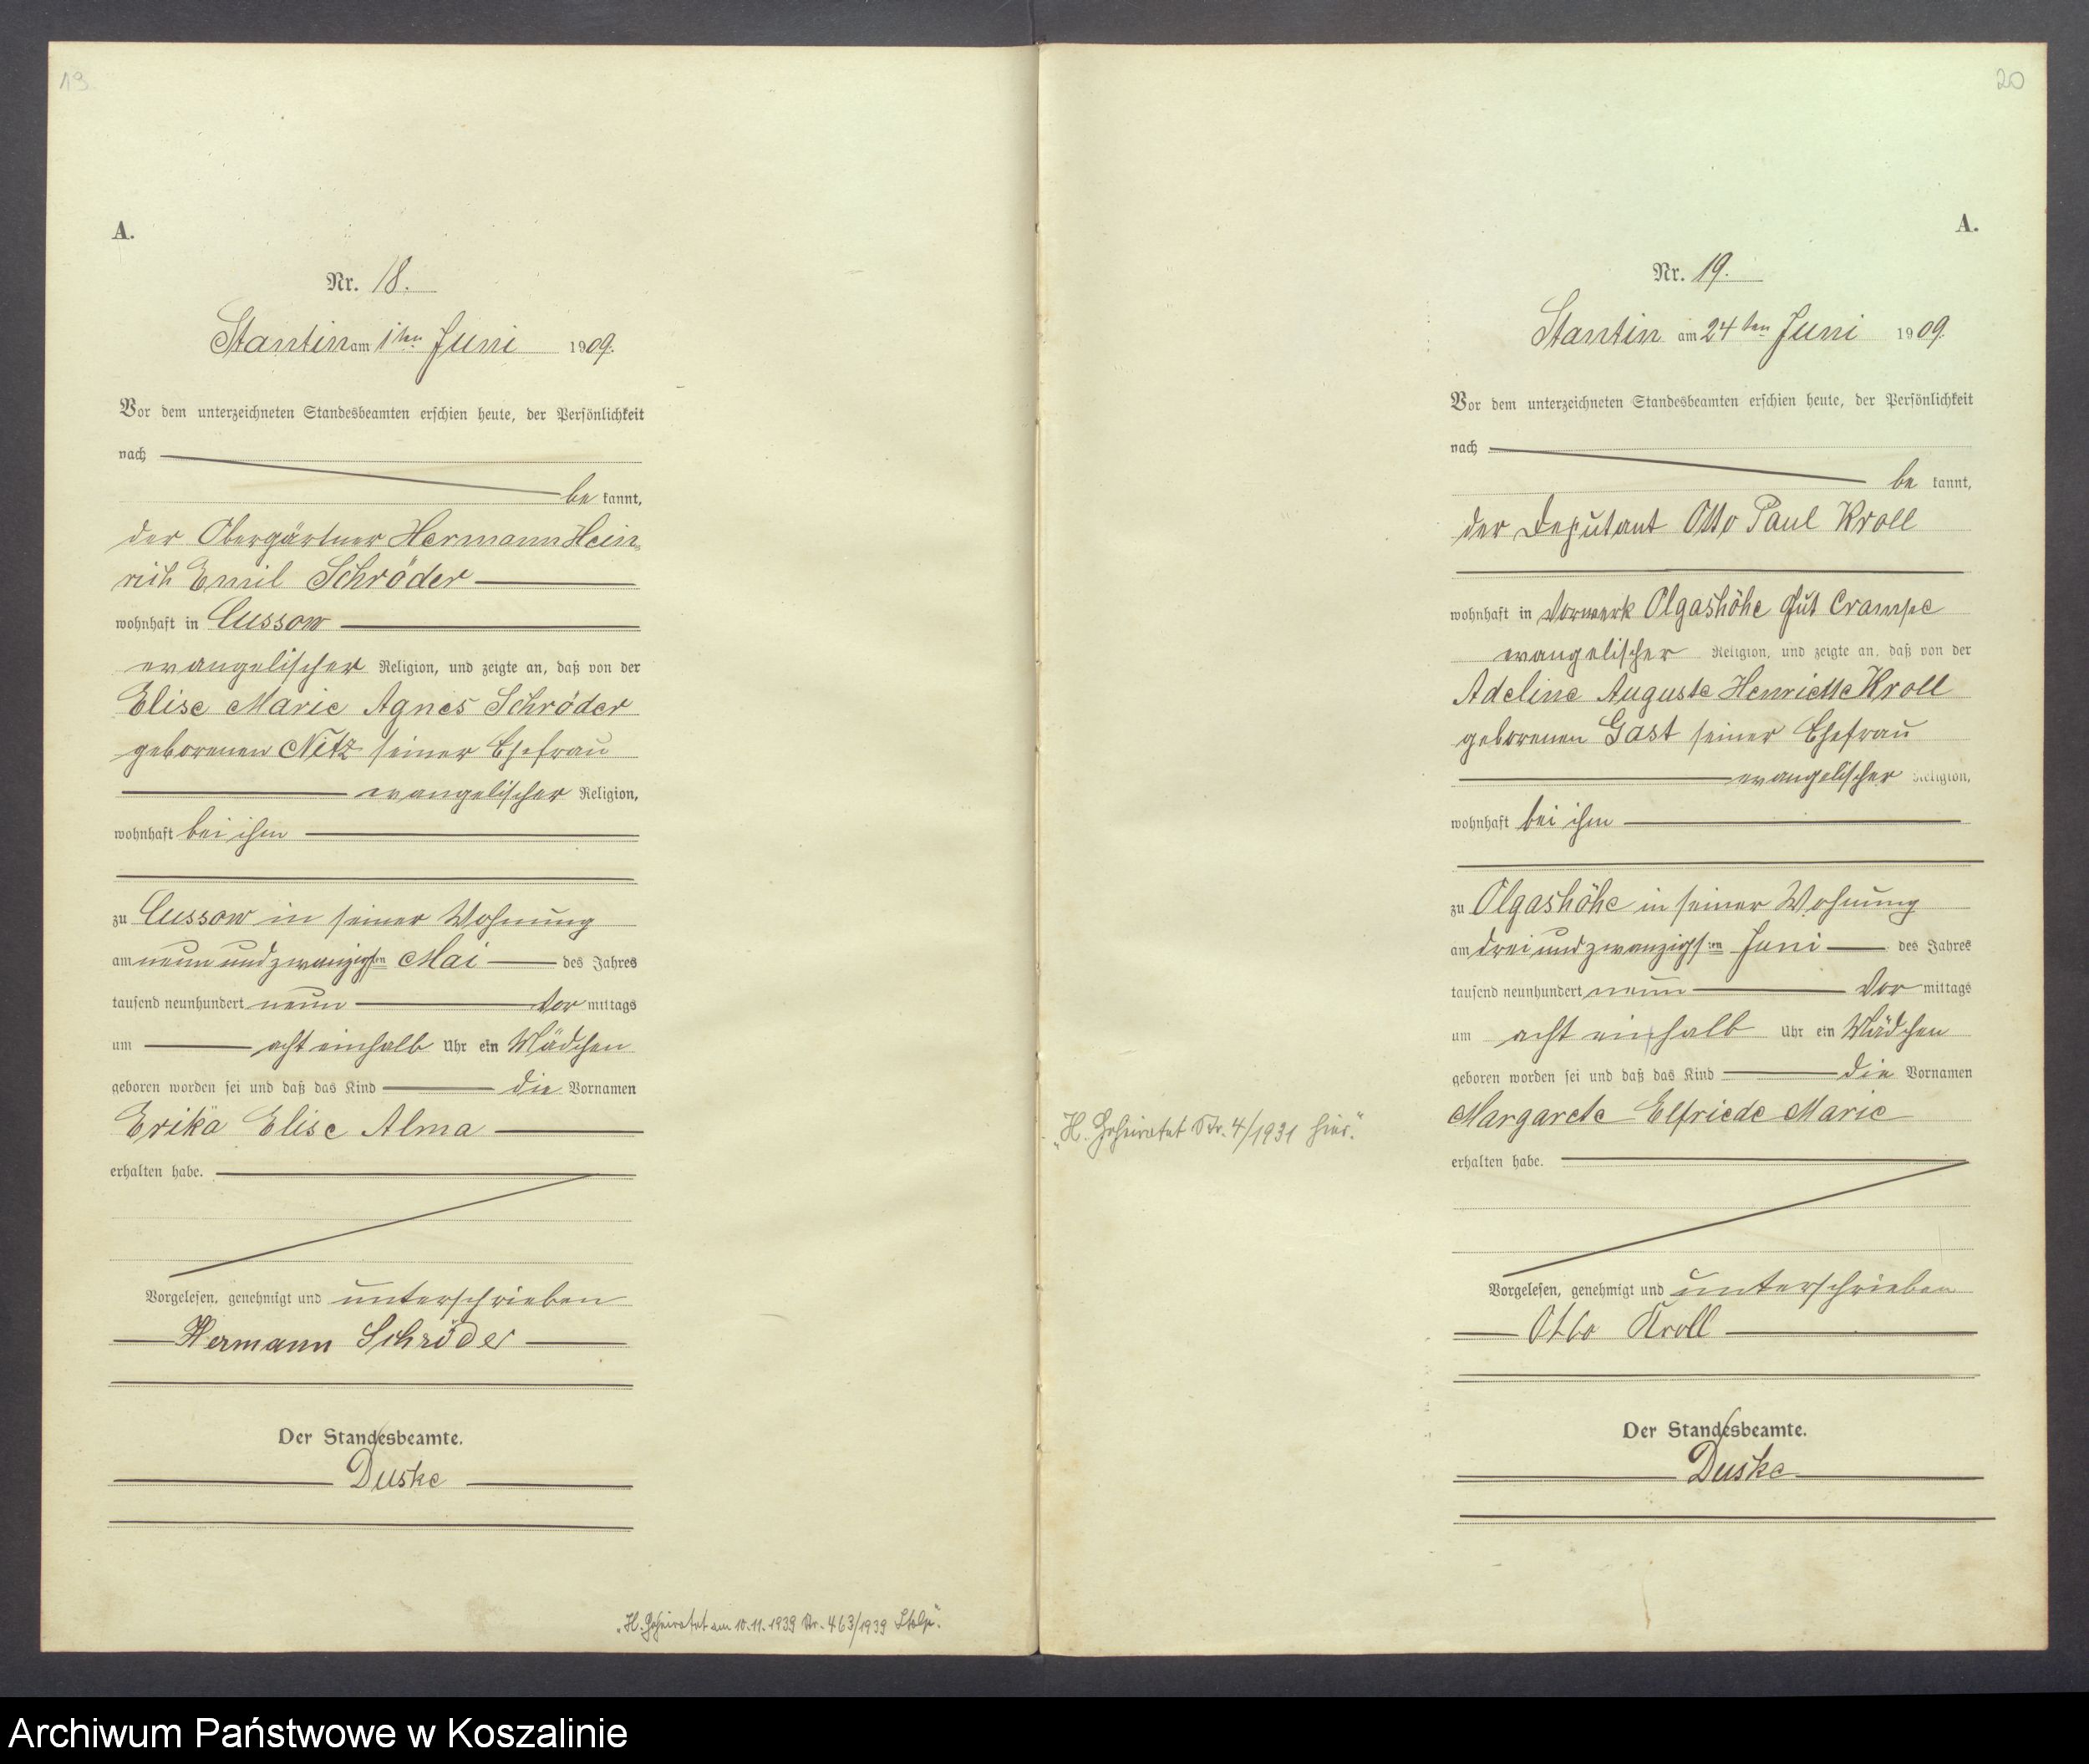 19
A.
Nr. 18.
Stantin am 1ten Juni 1909.
Vor dem unterzeichneten Standesbeamten erschien heute, der Persönlichkeit
nach
be kannt,
der Obergärtner Hermann Hein-
rich Emil Schröder
wohnhaft in Cussow
evangelischer Religion, und zeigte an, daß von der
Elise Marie Agnes Schröder
geborenen Netz seiner Ehefrau
evangelischer Religion,
wohnhaft bei ihm
zu Cussow in seiner Wohnung
am neun und zwanzigsten Mai des Jahres
tausend neunhundert neun Vor mittags
um acht einhalb Uhr ein Mädchen
geboren worden sei und daß das Kind die Vornamen
Erika Elise Alma
erhalten habe.
Vorgelesen, genehmigt und unterschrieben
Hermann Schröder
Der Standesbeamte.
Duske
"H. Geheiratet am 10.11.1939 Nr. 463/1939 Stolp."
20
A.
Nr. 19.
Stantin am 24ten Juni 1909.
Vor dem unterzeichneten Standesbeamten erschien heute, der Persönlichkeit
nach
be kannt,
der Deputant Otto Paul Kroll
wohnhaft in Vorwerk Olgashöhe Gut Crampe
evangelischer Religion, und zeigte an, daß von der
Adeline Auguste Henriette Kroll
geborenen Gast seiner Ehefrau
evangelischer Religion,
wohnhaft bei ihm
zu Olgashöhe in seiner Wohnung
am drei und zwanzigsten Juni des Jahres
tausend neunhundert neun Vor mittags
um acht einhalb Uhr ein Mädchen
geboren worden sei und daß das Kind die Vornamen
Margarete Elfriede Marie
"H. Geheiratet Nr. 4/1931 hier."
erhalten habe.
Vorgelesen, genehmigt und unterschrieben
Otto Kroll
Der Standesbeamte.
Duske
Archiwum Państwowe w Koszalinie